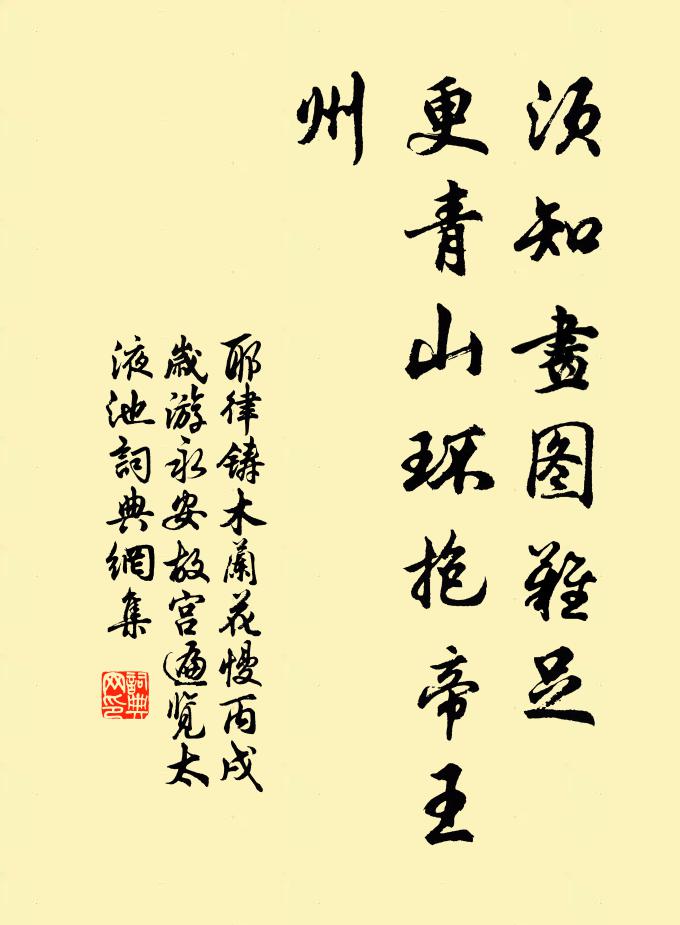 须知畫图難足
更青山环抱帝王
州
耶律鑄木蘭花慢丙戌
歲游永安故宫遍览太
液池詞典網集
詞典
网印